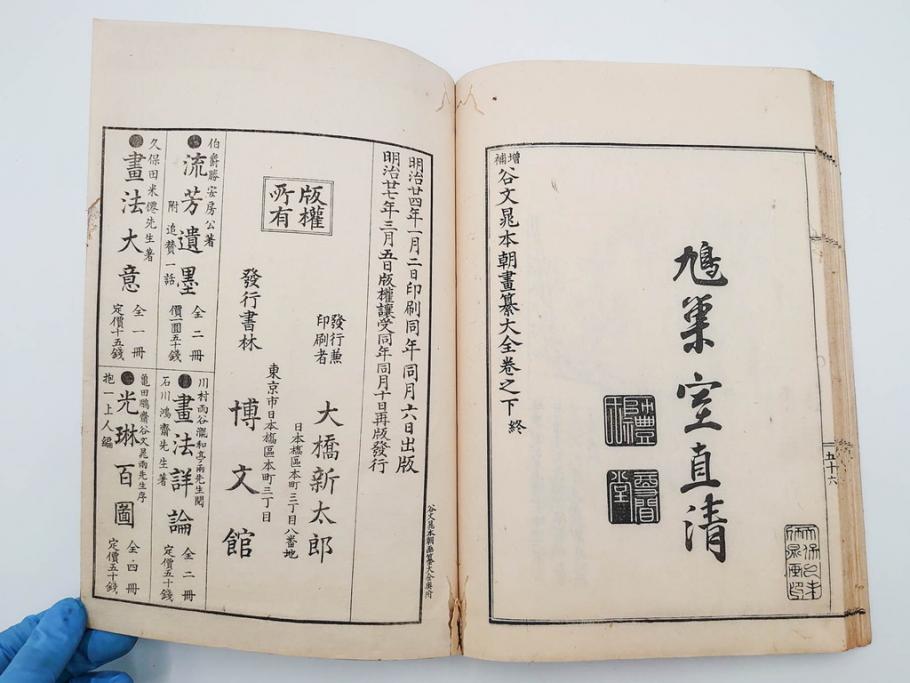 鳩巣室直清
増補谷文晁本朝畫纂大全巻之下 終
五十六
谷文晁本朝畫纂大全奥附
明治廿四年一月二日印刷同年同月六日出版
明治廿七年三月五日版權讓受同年同月十日再版發行
版權所有
發行兼印刷者 大橋新太郎
日本橋區本町三丁目八番地
東京市日本橋區本町三丁目
發行書林 博文館
伯爵勝安房公著
流芳遺墨 附追賛一話 全二冊 價一圓五十錢
久保田米僊先生著
畫法大意 全一冊 定價十五錢
川村雨谷瀧和亭両先生閲
石川鴻齋先生著
畫法詳論 全二冊 定價五十錢
亀田鵬齋谷文晁両先生序
抱一上人編
光琳百圖 全四冊 定價五十錢